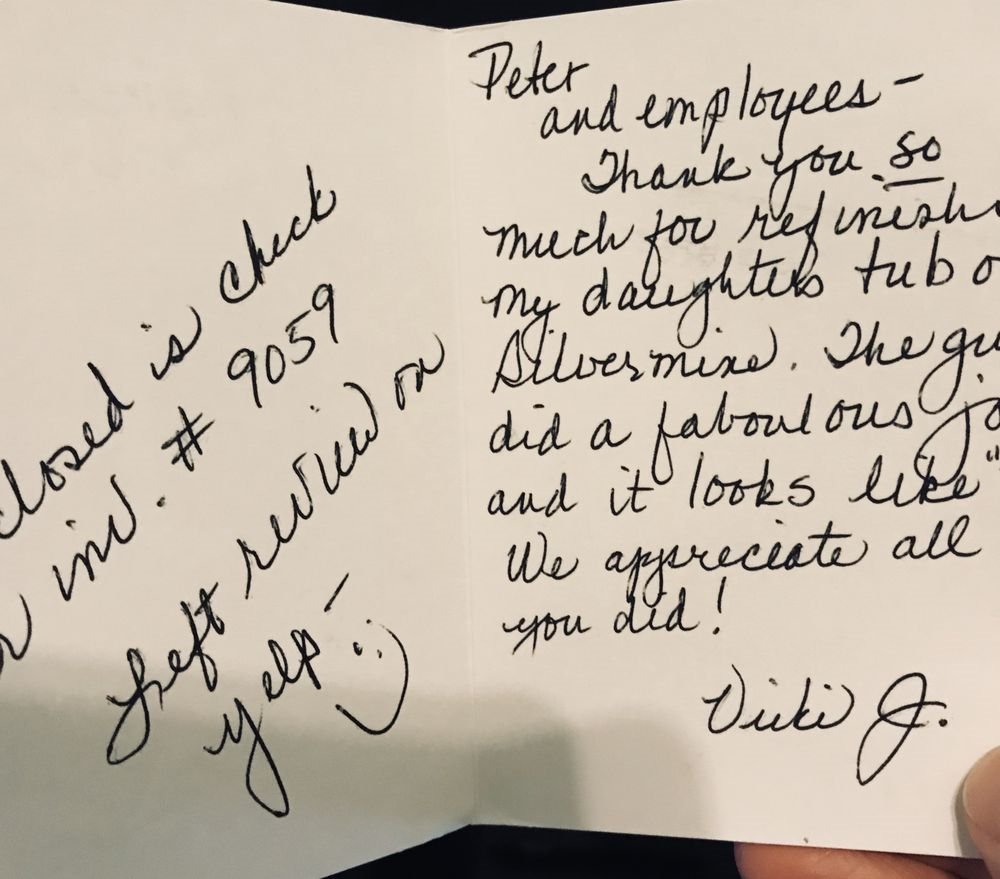 closed is check
inv. # 9059
Left review on
yelp - :)
Peter
and employees -
Thank you so
much for refinish
my daughters tub o
Silvermine. The gu
did a faboulous jo
and it looks like "
We appreciate all
you did!
Vicki J.